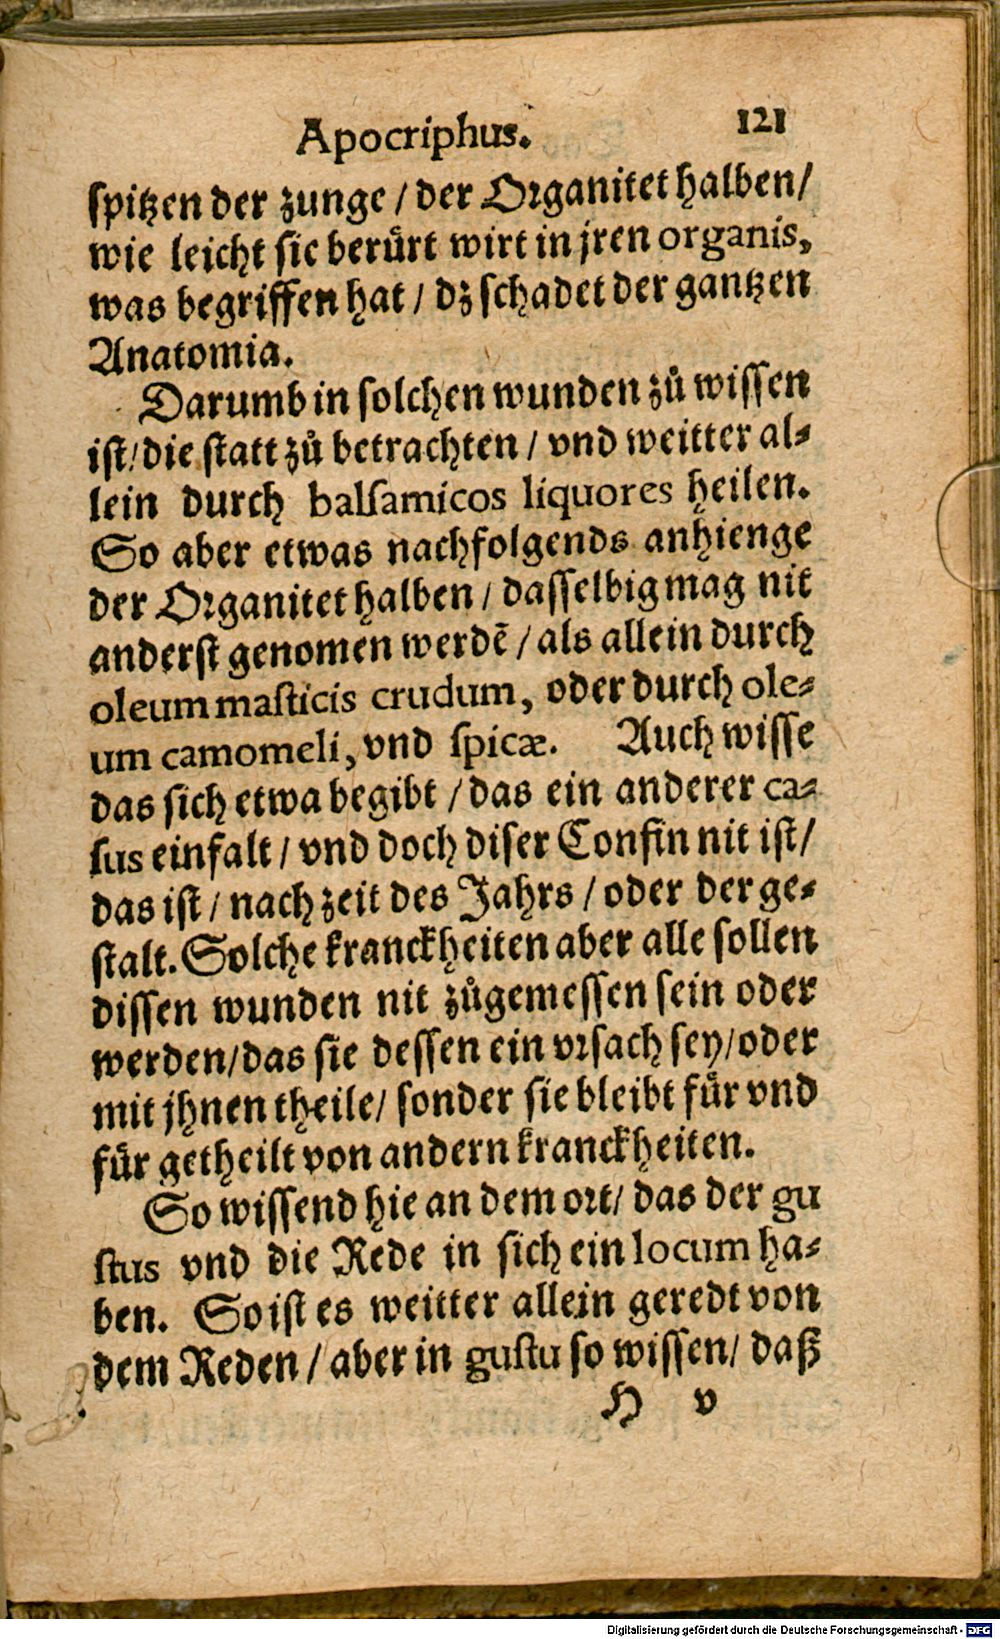 Apocriphus. 121
ſpitzen der zunge / der Organitet halben/
wie leicht ſie berůrt wirt in jren organis,
was begriffen hat / dz ſchadet der gantzen
Anatomia.
Darumb in ſolchen wunden zů wiſſen
iſt/ die ſtatt zů betrachten / vnd weitter al⸗
lein durch balſamicos liquores heilen.
So aber etwas nachfolgends anhienge
der Organitet halben / daſſelbig mag nit
anderſt genomen werdē / als allein durch
oleum maſticis crudum, oder durch ole⸗
um camomeli, vnd ſpicæ. Auch wiſſe
das ſich etwa begibt / das ein anderer ca⸗
ſus einfalt / vnd doch diſer Confin nit iſt/
das iſt / nach zeit des Jahrs / oder der ge⸗
ſtalt. Solche kranckheiten aber alle ſollen
diſſen wunden nit zůgemeſſen ſein oder
werden/ das ſie deſſen ein vrſach ſey/ oder
mit jhnen theile/ ſonder ſie bleibt für vnd
für getheilt von andern kranckheiten.
So wiſſend hie an dem ort/ das der gu
ſtus vnd die Rede in ſich ein locum ha⸗
ben. So iſt es weitter allein geredt von
dem Reden / aber in guſtu ſo wiſſen/ daß
H v
Digitalisierung gefördert durch die Deutsche Forschungsgemeinschaft - DFG